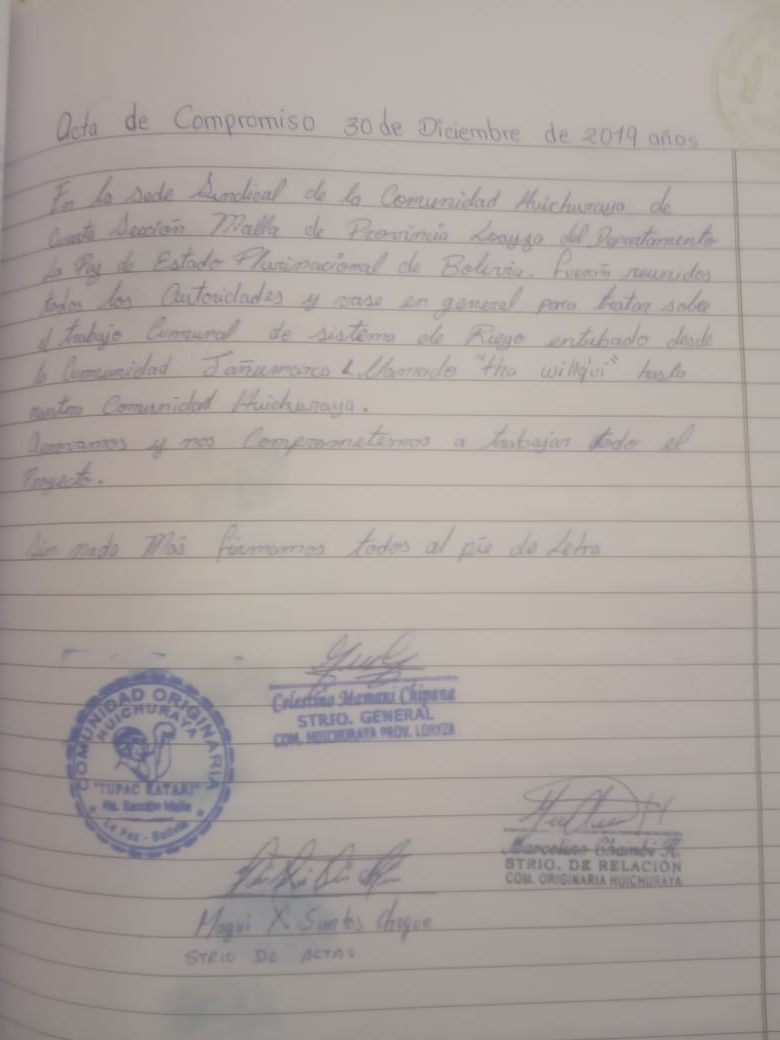 Acta de Compromiso 30 de Diciembre de 2019 años
En la sede Sindical de la Comunidad Huichuraya de
Cuarta Sección Malla de Provincia Loayza del Departamento
La Paz de Estado Plurinacional de Bolivia. fuerón reunidos
todos las Autoridades y vase en general para tratar sobre
el trabajo Comunal de sistema de Riego entubado desde
la Comunidad Jañumarca llamado "tha willq'ui" hasta
nuestra Comunidad Huichuraya.
y nos Comprometemos a trabajar todo el
Proyecto.
Sin nada Más firmamos todos al pie de Letra
COMUNIDAD ORIGINARIA
HUICHURAYA
"TUPAC KATARI"
4ta. Sección Malla
La Paz - Bolivia
Celestino Mamani Chipana
STRIO. GENERAL
COM. HUICHURAYA PROV. LOAYZA
Marcelino Chambi K.
STRIO. DE RELACIÓN
COM. ORIGINARIA HUICHURAYA
Magui X Santos Choque
STRIO DE ACTAS